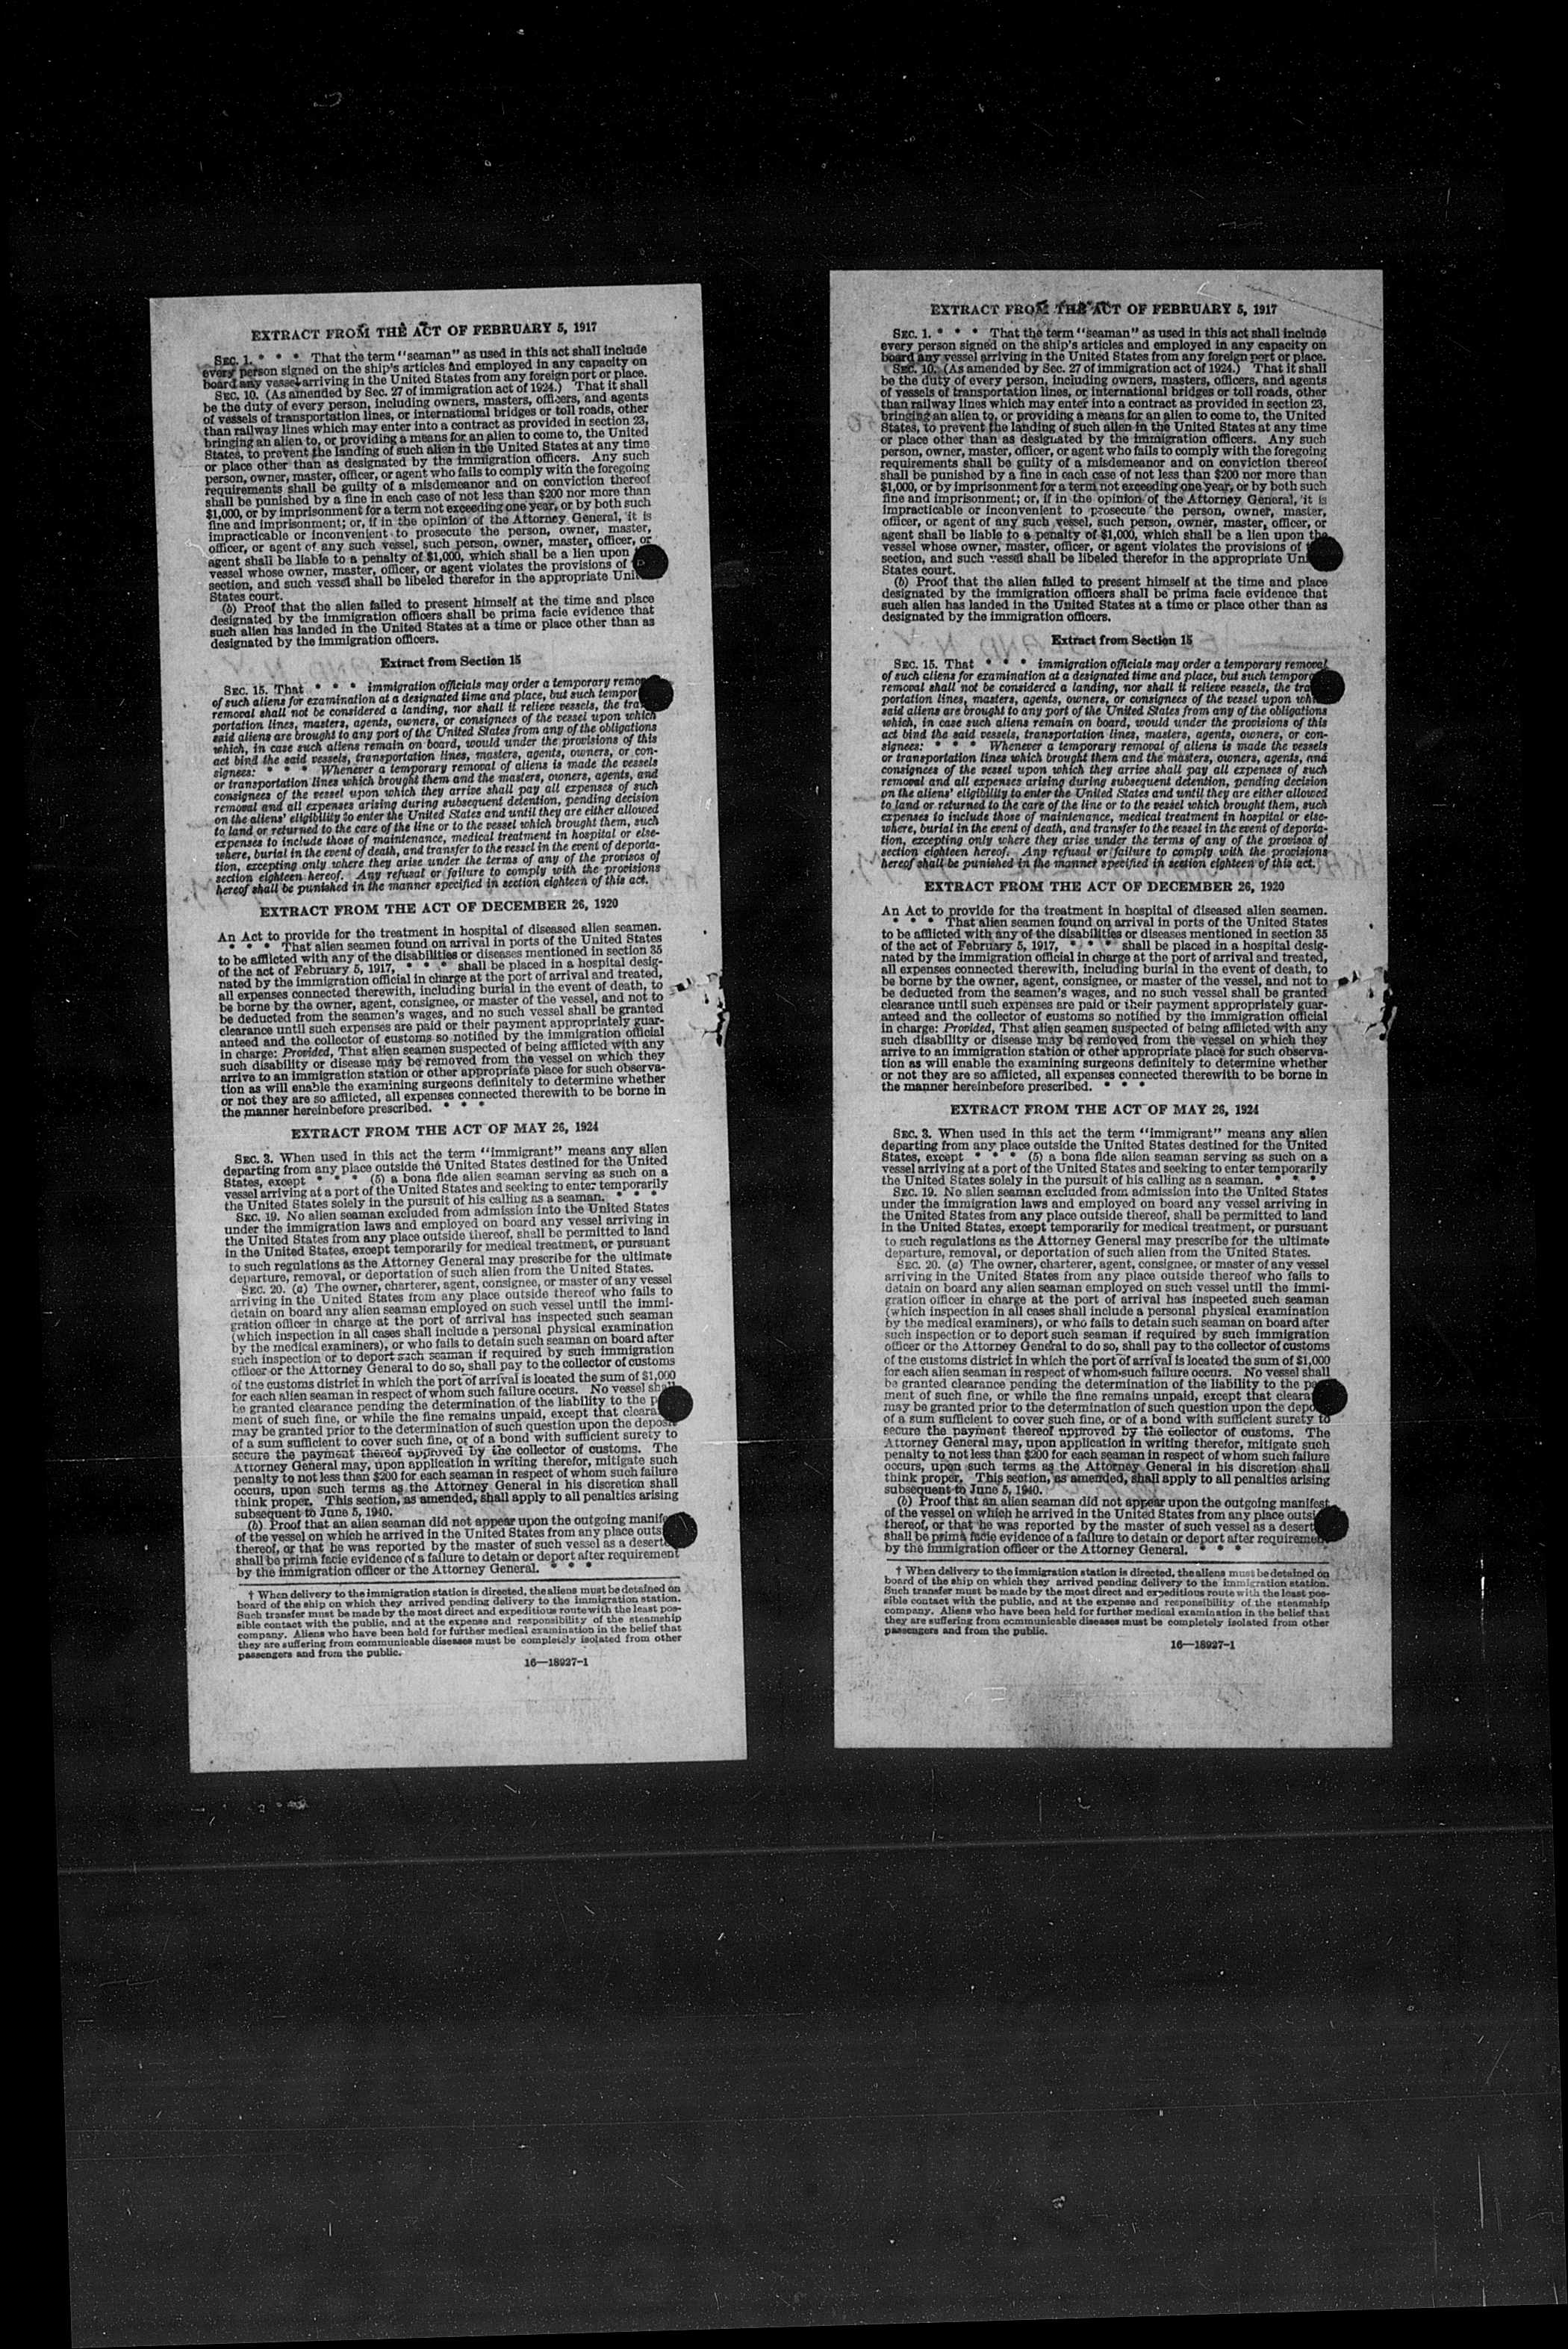 EXTRACT FROM THE ACT OF FEBRUARY 5, 1917
SEC. 1. * * * That the term "seaman" as used in this act shall include
every person signed on the ship's articles and employed in any capacity on
board any vessel arriving in the United States from any foreign port or place.
SEC. 10. (As amended by Sec. 27 of immigration act of 1924.) That it shall
be the duty of every person, including owners, masters, officers, and agents
of vessels of transportation lines, or international bridges or toll roads, other
than railway lines which may enter into a contract as provided in section 23,
bringing an alien to, or providing a means for an alien to come to, the United
States, to prevent the landing of such alien in the United States at any time
or place other than as designated by the immigration officers. Any such
person, owner, master, officer, or agent who fails to comply with the foregoing
requirements shall be guilty of a misdemeanor and on conviction thereof
shall be punished by a fine in each case of not less than $200 nor more than
$1,000, or by imprisonment for a term not exceeding one year, or by both such
fine and imprisonment; or, if in the opinion of the Attorney General, it is
impracticable or inconvenient to prosecute the person, owner, master,
officer, or agent of any such vessel, such person, owner, master, officer, or
agent shall be liable to a penalty of $1,000, which shall be a lien upon
vessel whose owner, master, officer, or agent violates the provisions of
section, and such vessel shall be libeled therefor in the appropriate Unit
States court.
(b) Proof that the alien failed to present himself at the time and place
designated by the immigration officers shall be prima facie evidence that
such alien has landed in the United States at a time or place other than as
designated by the immigration officers.
Extract from Section 15
SEC. 15. That * * * immigration officials may order a temporary remov
of such aliens for examination at a designated time and place, but such tempor
removal shall not be considered a landing, nor shall it relieve vessels, the tra
portation lines, masters, agents, owners, or consignees of the vessel upon which
said aliens are brought to any port of the United States from any of the obligations
which, in case such aliens remain on board, would under the provisions of this
act bind the said vessels, transportation lines, masters, agents, owners, or con-
signees: * * * Whenever a temporary removal of aliens is made the vessels
or transportation lines which brought them and the masters, owners, agents, and
consignees of the vessel upon which they arrive shall pay all expenses of such
removal and all expenses arising during subsequent detention, pending decision
on the aliens' eligibility to enter the United States and until they are either allowed
to land or returned to the care of the line or to the vessel which brought them, such
expenses to include those of maintenance, medical treatment in hospital or else-
where, burial in the event of death, and transfer to the vessel in the event of deporta-
tion, excepting only where they arise under the terms of any of the provisos of
section eighteen hereof. Any refusal or failure to comply with the provisions
hereof shall be punished in the manner specified in section eighteen of this act.
EXTRACT FROM THE ACT OF DECEMBER 26, 1920
An Act to provide for the treatment in hospital of diseased alien seamen.
* * * That alien seamen found on arrival in ports of the United States
to be afflicted with any of the disabilities or diseases mentioned in section 35
of the act of February 5, 1917, * * * shall be placed in a hospital desig-
nated by the immigration official in charge at the port of arrival and treated,
all expenses connected therewith, including burial in the event of death, to
be borne by the owner, agent, consignee, or master of the vessel, and not to
be deducted from the seamen's wages, and no such vessel shall be granted
clearance until such expenses are paid or their payment appropriately guar-
anteed and the collector of customs so notified by the immigration official
in charge: Provided, That alien seamen suspected of being afflicted with any
such disability or disease may be removed from the vessel on which they
arrive to an immigration station or other appropriate place for such observa-
tion as will enable the examining surgeons definitely to determine whether
or not they are so afflicted, all expenses connected therewith to be borne in
the manner hereinbefore prescribed. * * *
EXTRACT FROM THE ACT OF MAY 26, 1924
SEC. 3. When used in this act the term "immigrant" means any alien
departing from any place outside the United States destined for the United
States, except * * * (5) a bona fide alien seaman serving as such on a
vessel arriving at a port of the United States and seeking to enter temporarily
the United States solely in the pursuit of his calling as a seaman. * * *
SEC. 19. No alien seaman excluded from admission into the United States
under the immigration laws and employed on board any vessel arriving in
the United States from any place outside thereof, shall be permitted to land
in the United States, except temporarily for medical treatment, or pursuant
to such regulations as the Attorney General may prescribe for the ultimate
departure, removal, or deportation of such alien from the United States.
SEC. 20. (a) The owner, charterer, agent, consignee, or master of any vessel
arriving in the United States from any place outside thereof who fails to
detain on board any alien seaman employed on such vessel until the immi-
gration officer in charge at the port of arrival has inspected such seaman
(which inspection in all cases shall include a personal physical examination
by the medical examiners), or who fails to detain such seaman on board after
such inspection or to deport such seaman if required by such immigration
officer or the Attorney General to do so, shall pay to the collector of customs
of the customs district in which the port of arrival is located the sum of $1,000
for each alien seaman in respect of whom such failure occurs. No vessel shall
be granted clearance pending the determination of the liability to the p
ment of such fine, or while the fine remains unpaid, except that cleara
may be granted prior to the determination of such question upon the deposit
of a sum sufficient to cover such fine, or of a bond with sufficient surety to
secure the payment thereof approved by the collector of customs. The
Attorney General may, upon application in writing therefor, mitigate such
penalty to not less than $200 for each seaman in respect of whom such failure
occurs, upon such terms as the Attorney General in his discretion shall
think proper. This section, as amended, shall apply to all penalties arising
subsequent to June 5, 1940.
(b) Proof that an alien seaman did not appear upon the outgoing manifes
of the vessel on which he arrived in the United States from any place outs
thereof, or that he was reported by the master of such vessel as a deserte
shall be prima facie evidence of a failure to detain or deport after requirement
by the immigration officer or the Attorney General. * * *
† When delivery to the immigration station is directed, the aliens must be detained on
board of the ship on which they arrived pending delivery to the immigration station.
Such transfer must be made by the most direct and expeditious route with the least pos-
sible contact with the public, and at the expense and responsibility of the steamship
company. Aliens who have been held for further medical examination in the belief that
they are suffering from communicable diseases must be completely isolated from other
passengers and from the public.
16—18927-1
EXTRACT FROM THE ACT OF FEBRUARY 5, 1917
SEC. 1. * * * That the term "seaman" as used in this act shall include
every person signed on the ship's articles and employed in any capacity on
board any vessel arriving in the United States from any foreign port or place.
SEC. 10. (As amended by Sec. 27 of immigration act of 1924.) That it shall
be the duty of every person, including owners, masters, officers, and agents
of vessels of transportation lines, or international bridges or toll roads, other
than railway lines which may enter into a contract as provided in section 23,
bringing an alien to, or providing a means for an alien to come to, the United
States, to prevent the landing of such alien in the United States at any time
or place other than as designated by the immigration officers. Any such
person, owner, master, officer, or agent who fails to comply with the foregoing
requirements shall be guilty of a misdemeanor and on conviction thereof
shall be punished by a fine in each case of not less than $200 nor more than
$1,000, or by imprisonment for a term not exceeding one year, or by both such
fine and imprisonment; or, if in the opinion of the Attorney General, it is
impracticable or inconvenient to prosecute the person, owner, master,
officer, or agent of any such vessel, such person, owner, master, officer, or
agent shall be liable to a penalty of $1,000, which shall be a lien upon the
vessel whose owner, master, officer, or agent violates the provisions of
section, and such vessel shall be libeled therefor in the appropriate Uni
States court.
(b) Proof that the alien failed to present himself at the time and place
designated by the immigration officers shall be prima facie evidence that
such alien has landed in the United States at a time or place other than as
designated by the immigration officers.
Extract from Section 15
SEC. 15. That * * * immigration officials may order a temporary removal
of such aliens for examination at a designated time and place, but such tempora
removal shall not be considered a landing, nor shall it relieve vessels, the tra
portation lines, masters, agents, owners, or consignees of the vessel upon whi
said aliens are brought to any port of the United States from any of the obligations
which, in case such aliens remain on board, would under the provisions of this
act bind the said vessels, transportation lines, masters, agents, owners, or con-
signees: * * * Whenever a temporary removal of aliens is made the vessels
or transportation lines which brought them and the masters, owners, agents, and
consignees of the vessel upon which they arrive shall pay all expenses of such
removal and all expenses arising during subsequent detention, pending decision
on the aliens' eligibility to enter the United States and until they are either allowed
to land or returned to the care of the line or to the vessel which brought them, such
expenses to include those of maintenance, medical treatment in hospital or else-
where, burial in the event of death, and transfer to the vessel in the event of deporta-
tion, excepting only where they arise under the terms of any of the provisos of
section eighteen hereof. Any refusal or failure to comply with the provisions
hereof shall be punished in the manner specified in section eighteen of this act.
EXTRACT FROM THE ACT OF DECEMBER 26, 1920
An Act to provide for the treatment in hospital of diseased alien seamen.
* * * That alien seamen found on arrival in ports of the United States
to be afflicted with any of the disabilities or diseases mentioned in section 35
of the act of February 5, 1917, * * * shall be placed in a hospital desig-
nated by the immigration official in charge at the port of arrival and treated,
all expenses connected therewith, including burial in the event of death, to
be borne by the owner, agent, consignee, or master of the vessel, and not to
be deducted from the seamen's wages, and no such vessel shall be granted
clearance until such expenses are paid or their payment appropriately guar-
anteed and the collector of customs so notified by the immigration official
in charge: Provided, That alien seamen suspected of being afflicted with any
such disability or disease may be removed from the vessel on which they
arrive to an immigration station or other appropriate place for such observa-
tion as will enable the examining surgeons definitely to determine whether
or not they are so afflicted, all expenses connected therewith to be borne in
the manner hereinbefore prescribed. * * *
EXTRACT FROM THE ACT OF MAY 26, 1924
SEC. 3. When used in this act the term "immigrant" means any alien
departing from any place outside the United States destined for the United
States, except * * * (5) a bona fide alien seaman serving as such on a
vessel arriving at a port of the United States and seeking to enter temporarily
the United States solely in the pursuit of his calling as a seaman. * * *
SEC. 19. No alien seaman excluded from admission into the United States
under the immigration laws and employed on board any vessel arriving in
the United States from any place outside thereof, shall be permitted to land
in the United States, except temporarily for medical treatment, or pursuant
to such regulations as the Attorney General may prescribe for the ultimate
departure, removal, or deportation of such alien from the United States.
SEC. 20. (a) The owner, charterer, agent, consignee, or master of any vessel
arriving in the United States from any place outside thereof who fails to
detain on board any alien seaman employed on such vessel until the immi-
gration officer in charge at the port of arrival has inspected such seaman
(which inspection in all cases shall include a personal physical examination
by the medical examiners), or who fails to detain such seaman on board after
such inspection or to deport such seaman if required by such immigration
officer or the Attorney General to do so, shall pay to the collector of customs
of the customs district in which the port of arrival is located the sum of $1,000
for each alien seaman in respect of whom such failure occurs. No vessel shall
be granted clearance pending the determination of the liability to the pa
ment of such fine, or while the fine remains unpaid, except that cleara
may be granted prior to the determination of such question upon the depo
of a sum sufficient to cover such fine, or of a bond with sufficient surety to
secure the payment thereof approved by the collector of customs. The
Attorney General may, upon application in writing therefor, mitigate such
penalty to not less than $200 for each seaman in respect of whom such failure
occurs, upon such terms as the Attorney General in his discretion shall
think proper. This section, as amended, shall apply to all penalties arising
subsequent to June 5, 1940.
(b) Proof that an alien seaman did not appear upon the outgoing manifest
of the vessel on which he arrived in the United States from any place outsi
thereof, or that he was reported by the master of such vessel as a desert
shall be prima facie evidence of a failure to detain or deport after requiremen
by the immigration officer or the Attorney General. * * *
† When delivery to the immigration station is directed, the aliens must be detained on
board of the ship on which they arrived pending delivery to the immigration station.
Such transfer must be made by the most direct and expeditious route with the least pos-
sible contact with the public, and at the expense and responsibility of the steamship
company. Aliens who have been held for further medical examination in the belief that
they are suffering from communicable diseases must be completely isolated from other
passengers and from the public.
16—18927-1